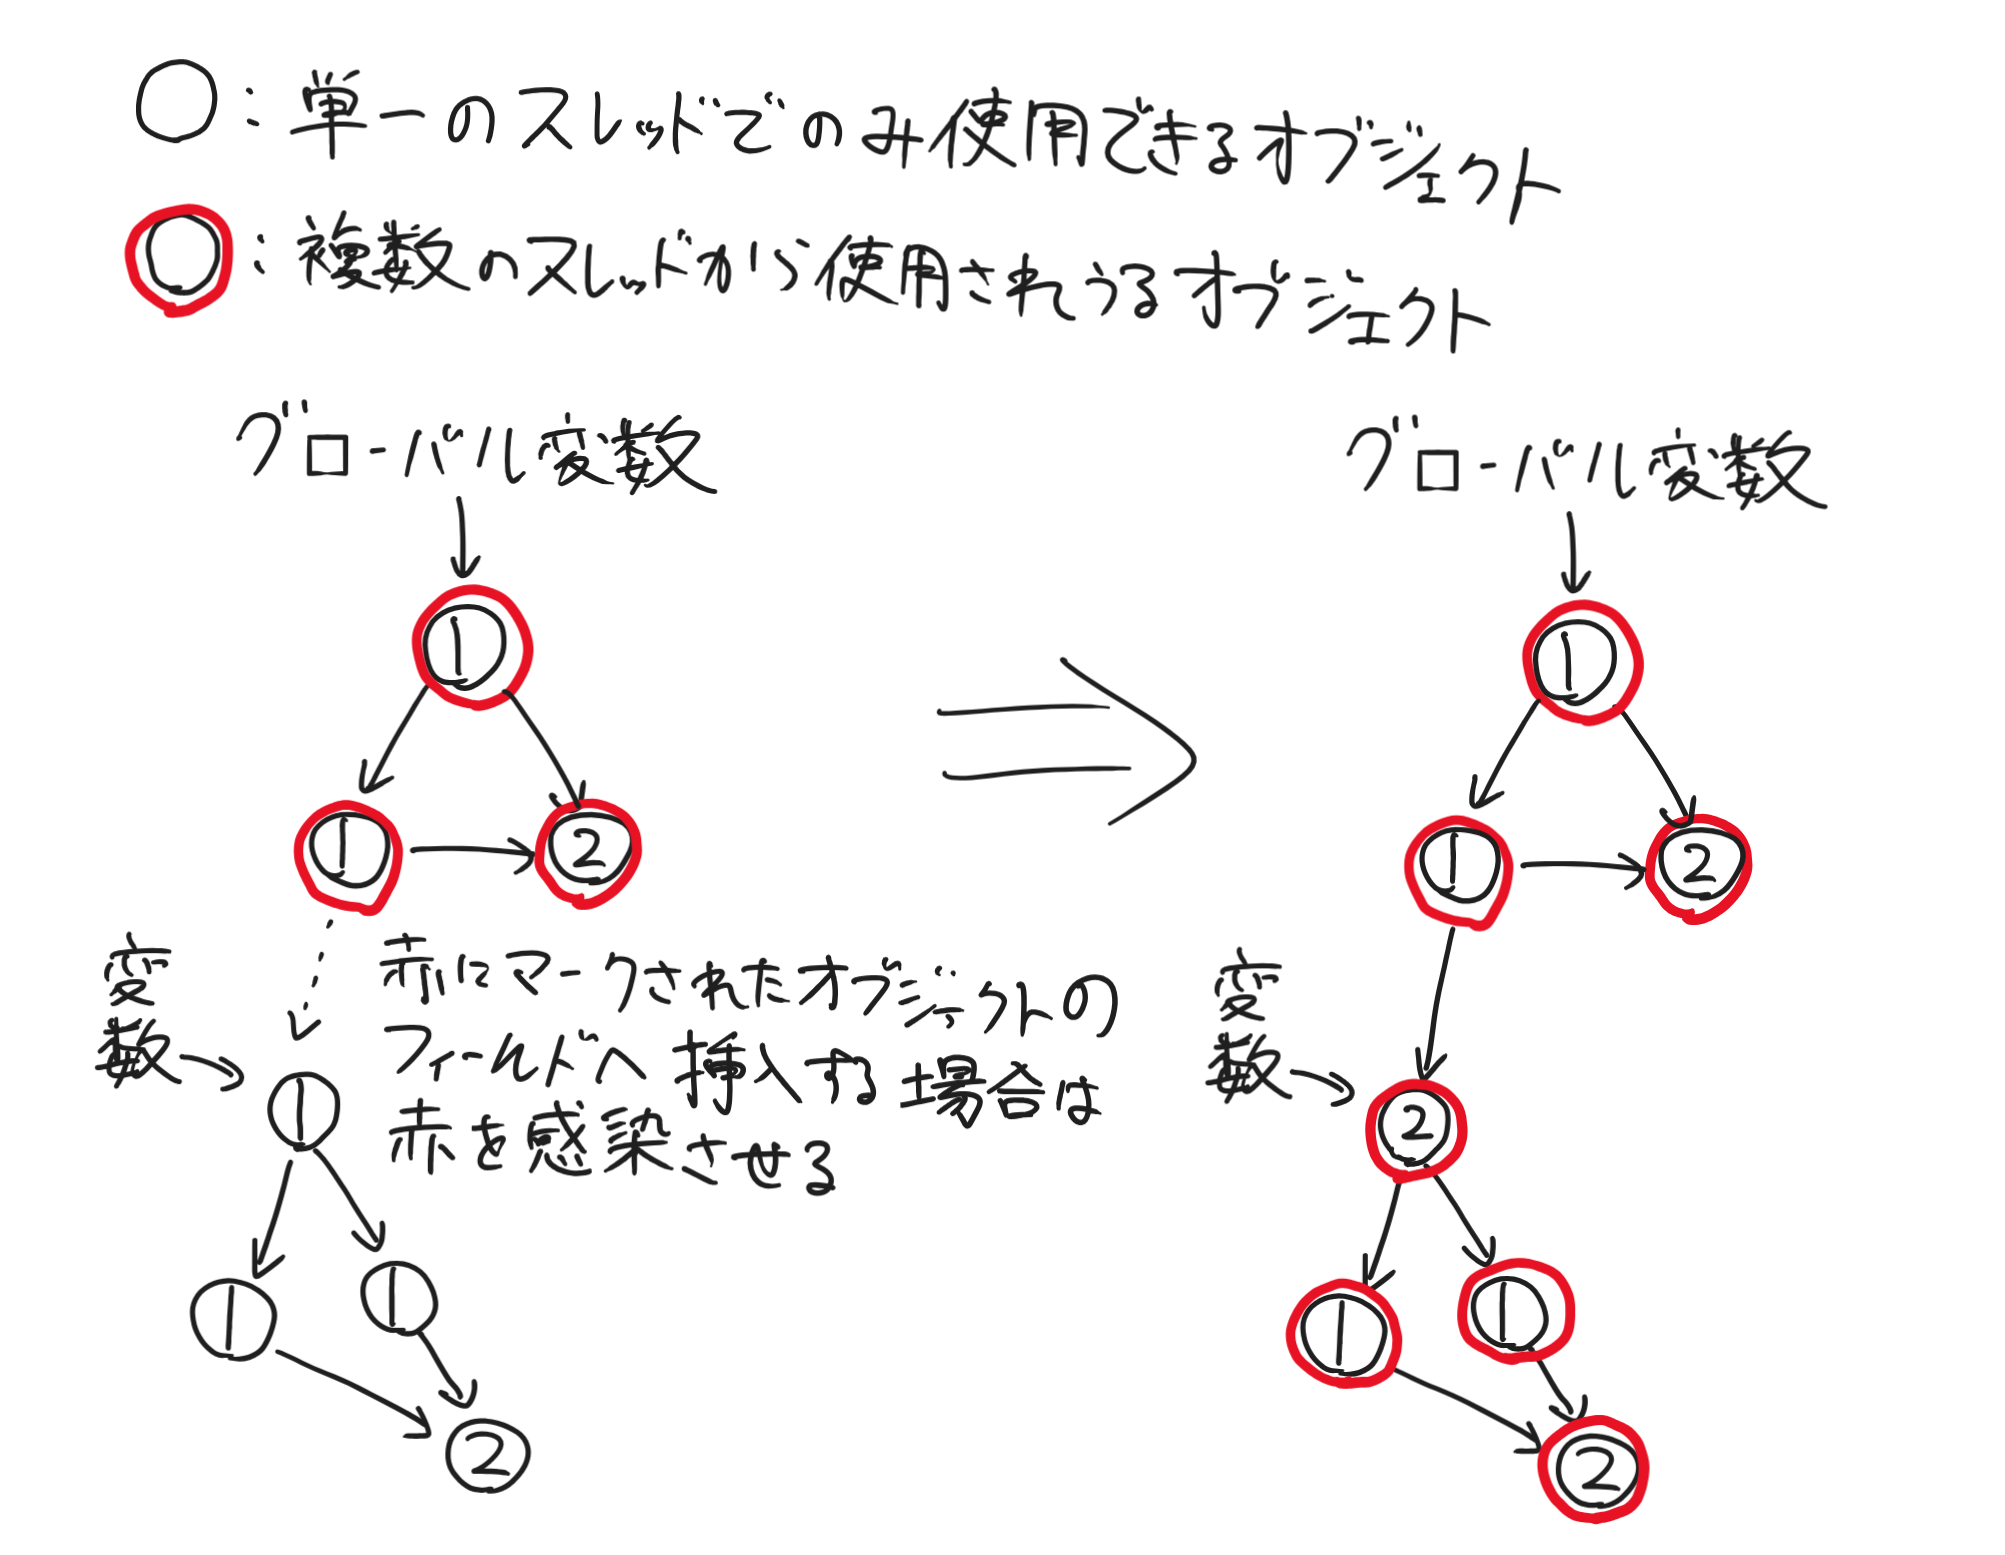 ○：単一のスレッドでのみ使用できるオブジェクト
○：複数のスレッドから使用されうるオブジェクト
グローバル変数
1
1
2
変数
1
1
1
2
赤にマークされたオブジェクトの
フィールドへ挿入する場合は
赤を感染させる
グローバル変数
1
1
2
変数
2
1
1
2